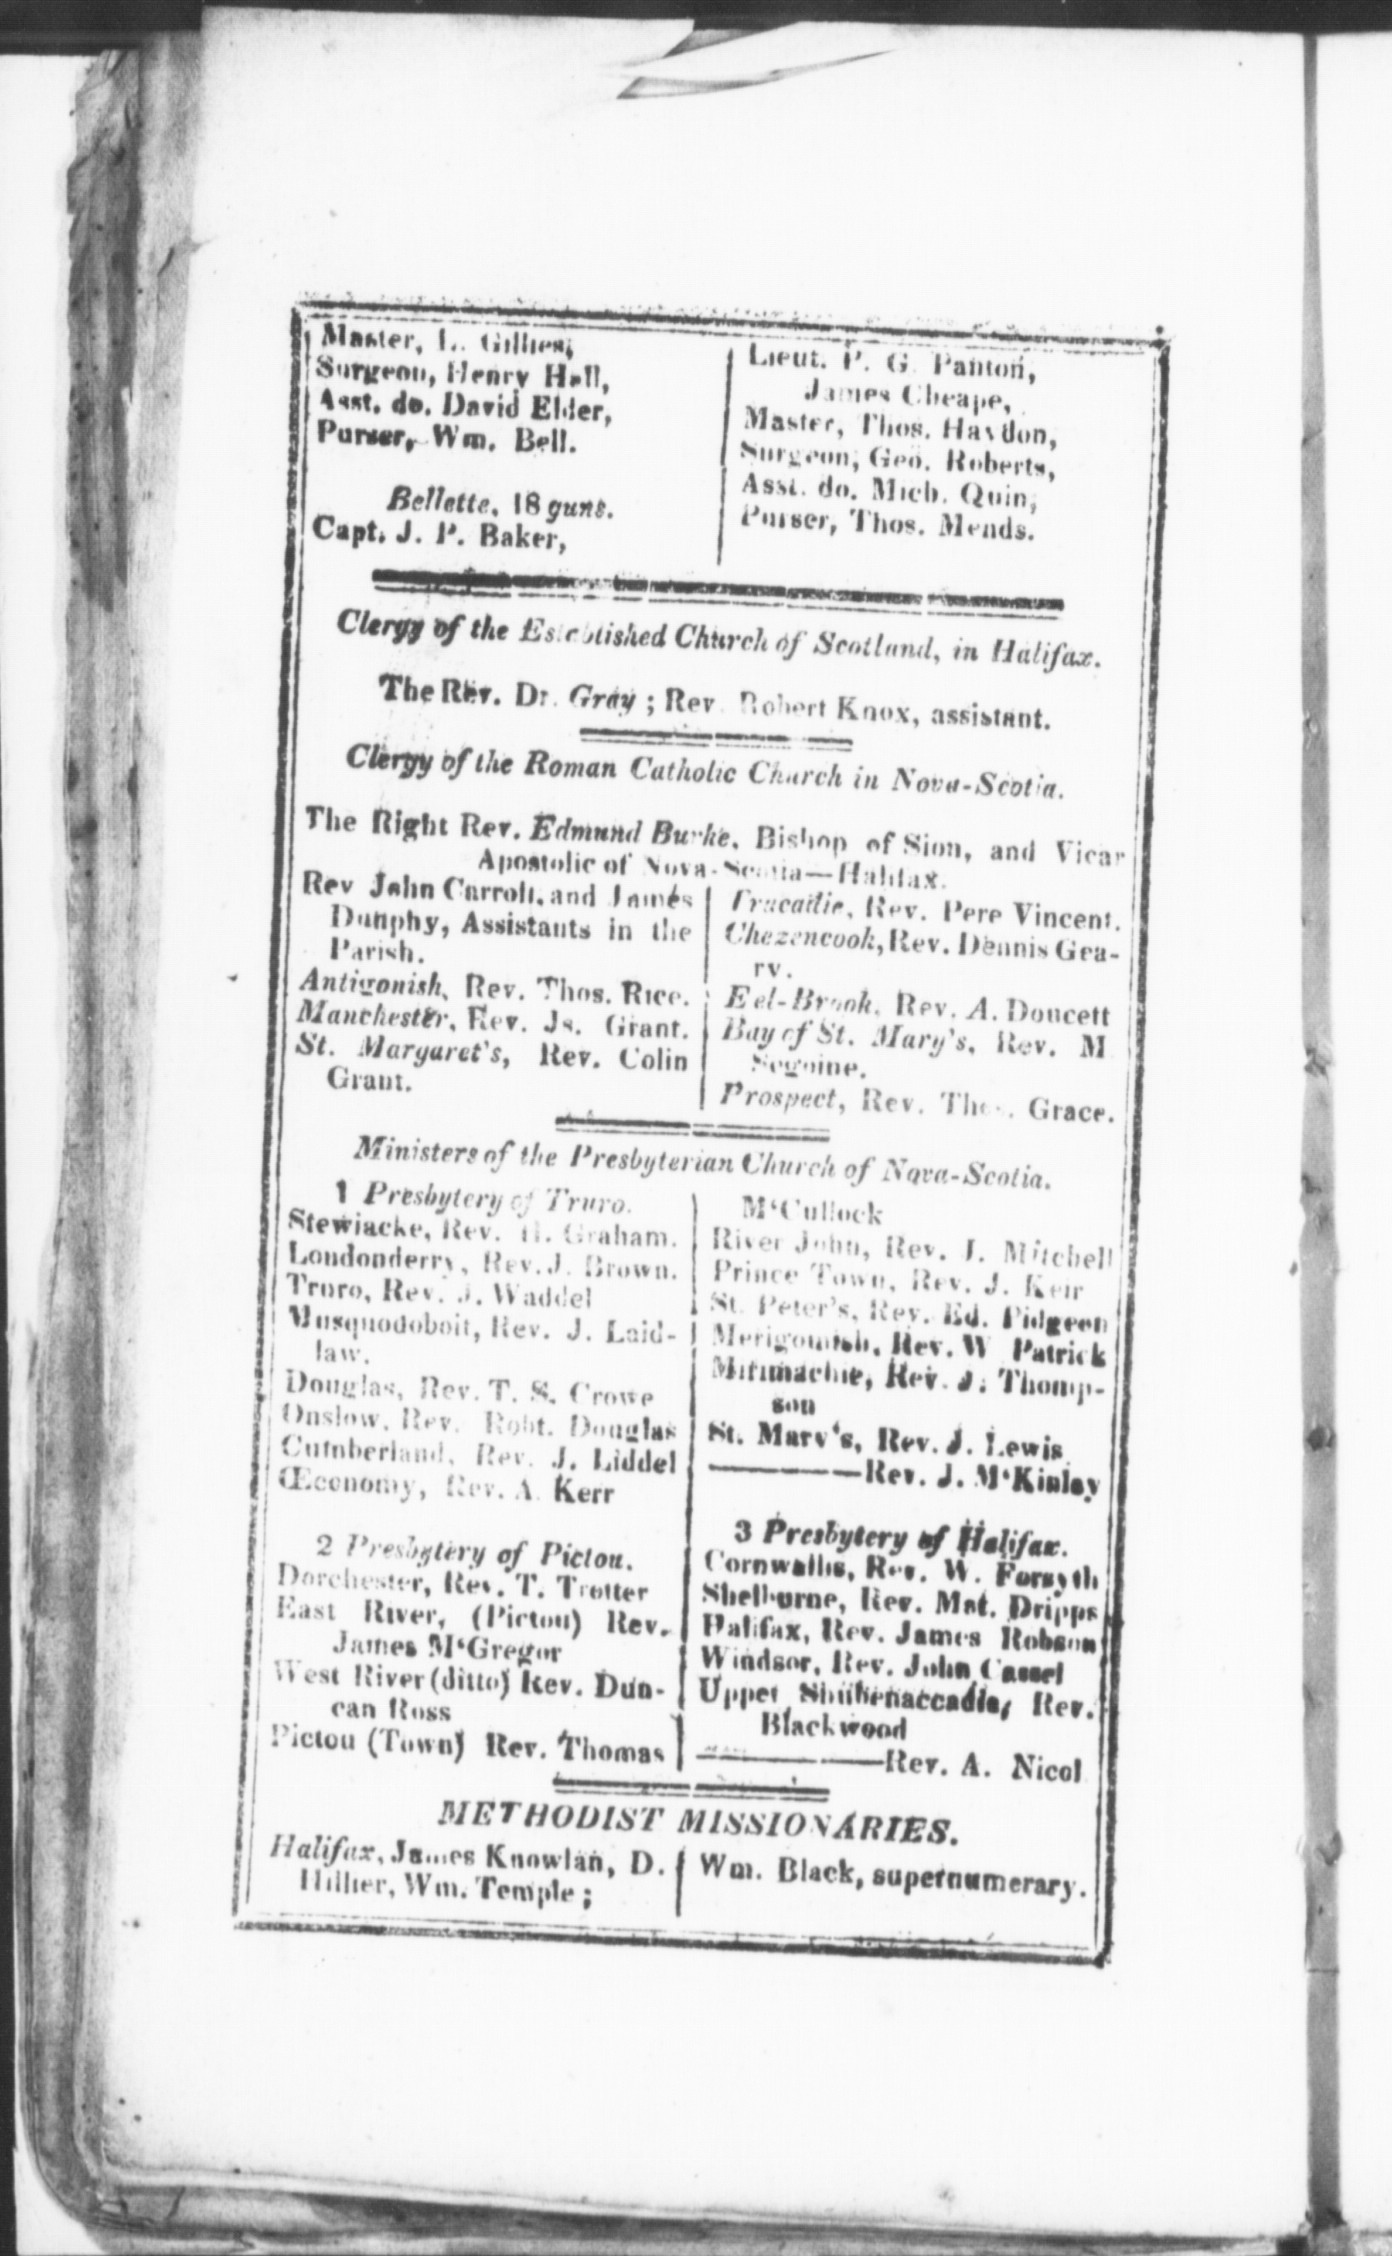 Master, L. Gillies,
Surgeon, Henry Hall,
Asst. do. David Elder,
Purser, Wm. Bell.
Bellette, 18 guns.
Capt. J. P. Baker,
Lieut. P. G. Panton,
James Cheape,
Master, Thos. Haydon,
Surgeon, Geo. Roberts,
Asst. do. Mich. Quin,
Purser, Thos. Mends.
Clergy of the Established Church of Scotland, in Halifax.
The Rev. Dr. Gray ; Rev. Robert Knox, assistant.
Clergy of the Roman Catholic Church in Nova-Scotia.
The Right Rev. Edmund Burke, Bishop of Sion, and Vicar
Apostolic of Nova-Scotia—Halifax.
Rev John Carroll, and James
Dunphy, Assistants in the
Parish.
Antigonish, Rev. Thos. Rice.
Manchester, Rev. Js. Grant.
St. Margaret's, Rev. Colin
Grant.
Tracadie, Rev. Pere Vincent.
Chezencook, Rev. Dennis Gea-
ry.
Eel-Brook, Rev. A. Doucett
Bay of St. Mary's, Rev. M
Segoine.
Prospect, Rev. Thos. Grace.
Ministers of the Presbyterian Church of Nova-Scotia.
1 Presbytery of Truro.
Stewiacke, Rev. H. Graham.
Londonderry, Rev. J. Brown.
Truro, Rev. J. Waddel
Musquodoboit, Rev. J. Laid-
law.
Douglas, Rev. T. S. Crowe
Onslow, Rev. Robt. Douglas
Cumberland, Rev. J. Liddel
Œconomy, Rev. A. Kerr
2 Presbytery of Pictou.
Dorchester, Rev. T. Trotter
East River, (Pictou) Rev.
James M'Gregor
West River (ditto) Rev. Dun-
can Ross
Pictou (Town) Rev. Thomas
M'Cullock
River John, Rev. J. Mitchell
Prince Town, Rev. J. Keir
St. Peter's, Rev. Ed. Pidgeon
Merigomish, Rev. W Patrick
Mirimachie, Rev. J. Thomp-
son
St. Mary's, Rev. J. Lewis
————Rev. J. M'Kinlay
3 Presbytery of Halifax.
Cornwallis, Rev. W. Forsyth
Shelburne, Rev. Mat. Dripps
Halifax, Rev. James Robson
Windsor, Rev. John Cassel
Upper Shubenaccadia, Rev.
Blackwood
————Rev. A. Nicol
METHODIST MISSIONARIES.
Halifax, James Knowlan, D.
Hillier, Wm. Temple ;
Wm. Black, supernumerary.